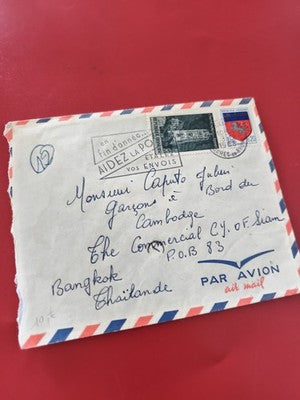 15
en
fin d'année...
AIDEZ LA PO
ETA
VOS ENVOIS
Monsieur Caputo Julien
Garçons à Bord du
Cambodge
The Commercial Cy. OF. Siam
P.O.B 83
Bangkok
Thaïlande
PAR AVION
air mail